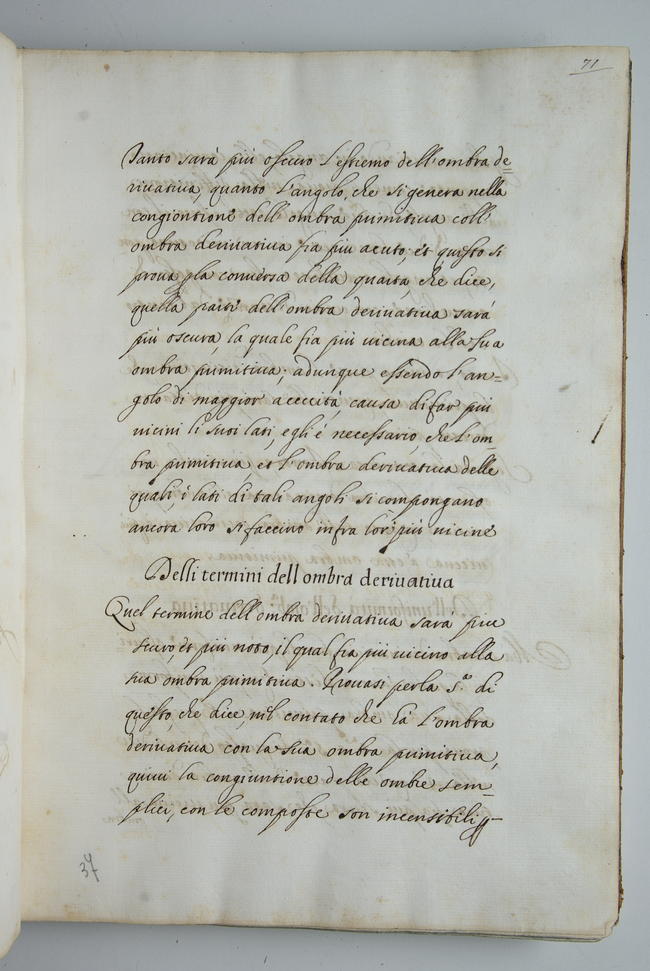 71
Tanto sarà più oscuro l'estremo dell'ombra de=
rivativa, quanto l'angolo, che si genera nella
congiontione dell'ombra primitiva coll'
ombra derivativa fia piu acuto; et questo si
prova pla conversa della quarta, che dice,
quella parte dell'ombra derivativa sarà
più oscura, la quale fia più vicina alla sua
ombra primitiva; adunque essendo l'an=
golo di maggior acecità, causa di far più
vicini li suoi lati, egli é necessario, che l'om=
bra primitiva, et l'ombra derivativa delle
quali, i lati di tali angoli si compongano
ancora loro si faccino infra lor più vicine
Delli termini dell ombra derivativa
Quel termine dell'ombra derivativa sarà piu
scuro, et più noto, il qual fia più vicino alla
sua ombra primitiva. Trovasi per la 5.ª di
questo, che dice, nel contato che fà l'ombra
derivativa con la sua ombra primitiva,
quivi la congiuntione delle ombre sem=
plici, con le composte son incensibili
37